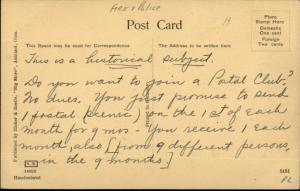 Post Card
Place
Stamp Here
Domestic
One cent
Foreign
Two cents
This Space may be used for Correspondence
The Address to be written here
This is a historical subject.
Do you want to join a Postal Club?
No dues. You just promise to send
1 postal (scenic) on the 1st of each
month for 9 mos - You receive 1 each
month, also [from 9 different persons,
in the 9 months.]
Handcolored